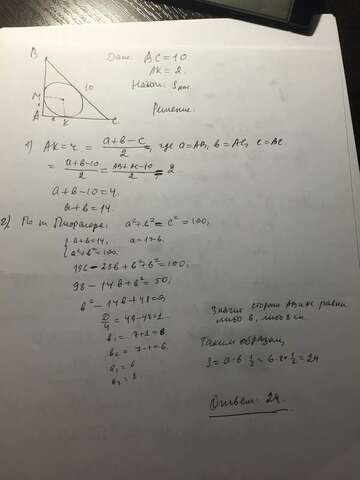 Дано: BC=10.
AK=2.
Найти: S
Решение:
B
10
M
A
K
C
1) AK=r = (a+b-c)/2, где a=AB, b=AC, c=BC
= (a+b-10)/2 = (AB+AC-10)/2 = 2
a+b-10=4.
a+b=14.
2) По т. Пифагора: a²+b²=c²=100;
{a+b=14, a=14-b.
{a²+b²=100.
196-28b+b²+b²=100;
98-14b+b²=50;
b²-14b+48=0;
D/4=49-48=1.
b₁=7+1=8.
b₂=7-1=6.
a₁=6
a₂=8
Значит стороны AB и AC равны
либо 6, либо 8 см.
Таким образом,
S=a·b·1/2=6·8·1/2=24
Ответ: 24.